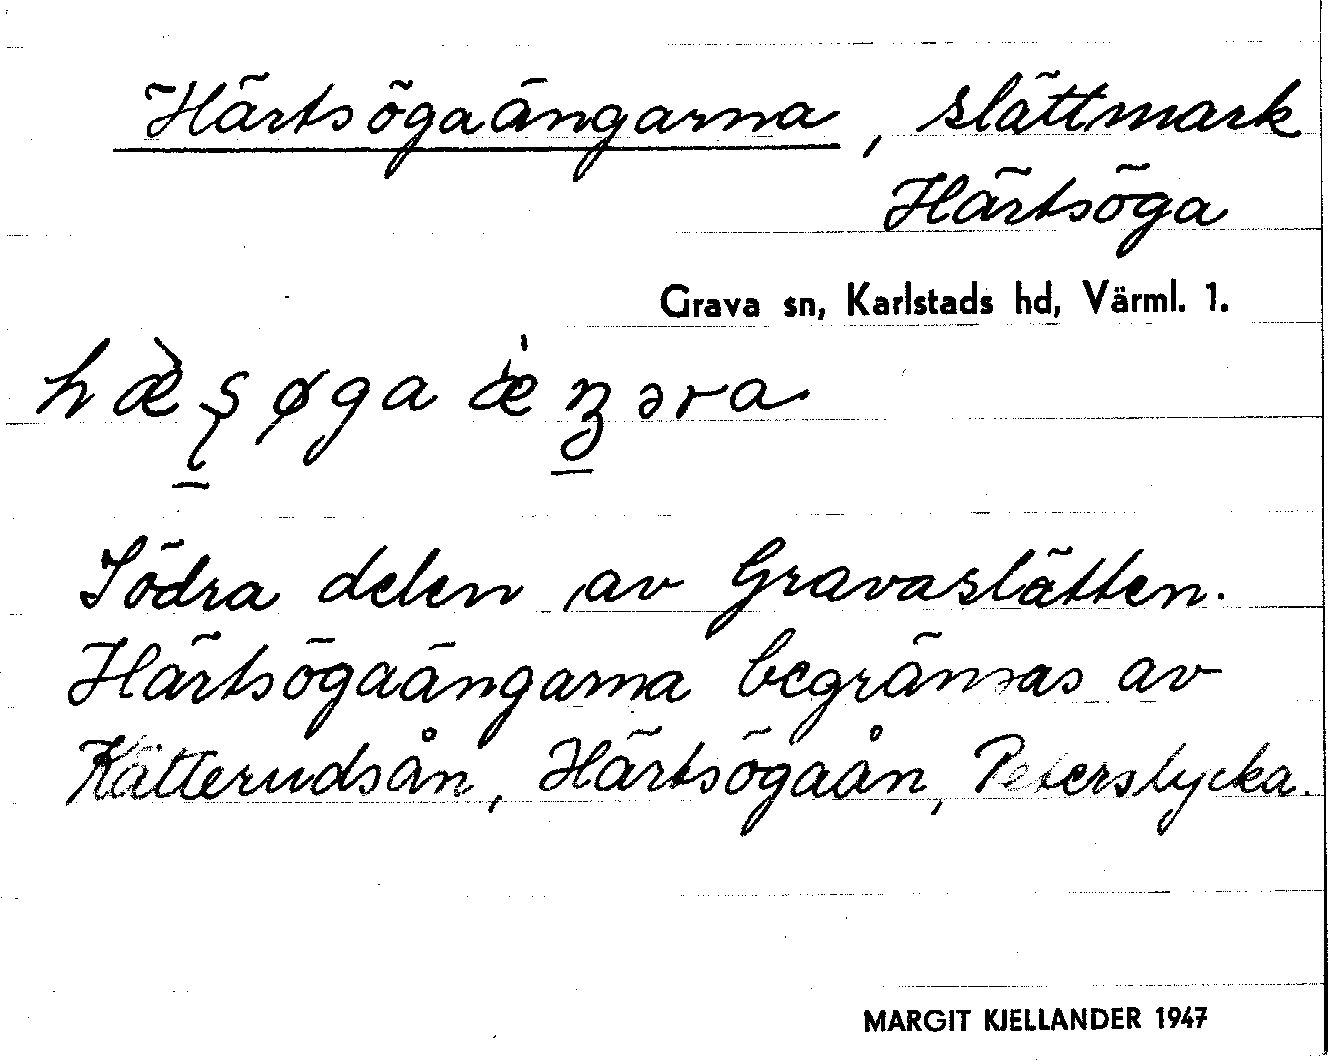 Härtsögaängarna, slättmark
Härtsöga
Grava sn, Karlstads hd, Värml. 1.
hæ̀ʂøgaæ̀ŋəra
Södra delen av Gravaslätten.
Härtsögaängarna begränsas av
Kätterudsån, Härtsögaån, Peterslycka.
MARGIT KJELLANDER 1947